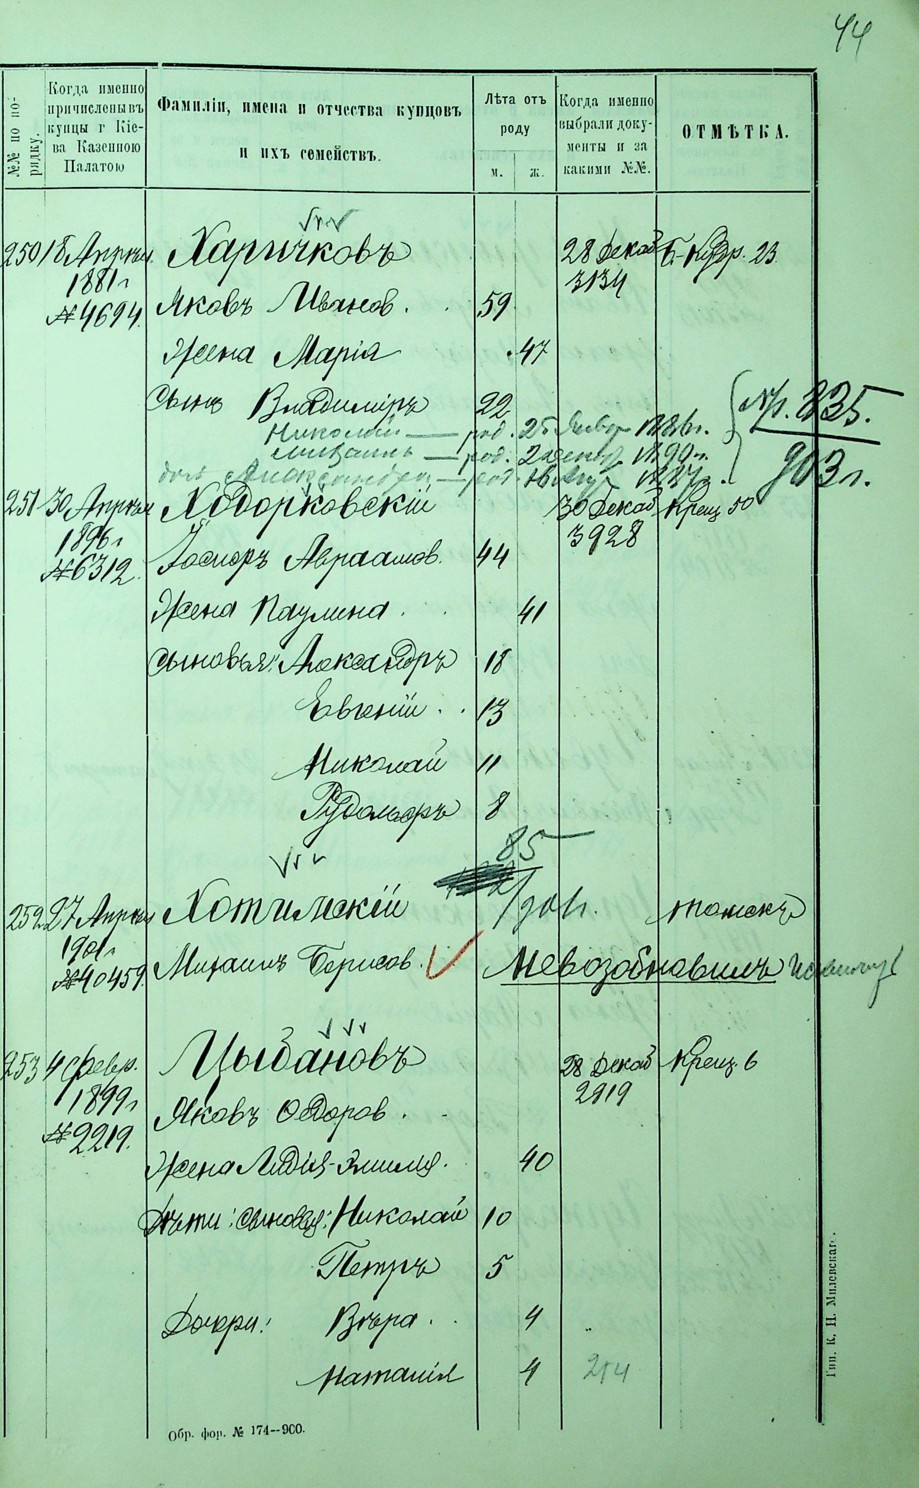 44
№№ по по-
рядку.
Когда именно
причислены въ
купцы г Кіе-
ва Казенною
Палатою
Фамиліи, имена и отчества купцовъ
и ихъ семействъ.
Лѣта отъ
роду
м. ж.
Когда именно
выбрали доку-
менты и за
какими №№.
ОТМѢТКА.
250 18 Апрѣля Харичковъ 28 Декаб
1881 г 3134
№ 4694. Яковъ Иванов. 59
Жена Марія 47
Сынъ Владиміръ 22
Николай — род. 25 Январ 1886 г. Пр. 235.
Михаилъ — род. 2 1890 г. 903 г.
доч Александра — род. 16 Авг
251 30 Апрѣля Ходорковскій 30 Декаб Крещ 50
1896 г 3928
№ 6312. Іосифъ Авраамов. 44
Жена Паулина. 41
Сыновья: Александръ 18
Евгеній. 13
Николай 11
Рудольфъ 8
85
1901 г.
252 27 Апрѣля Хотимскій
1901 г
№ 40459 Михаилъ Борисов. Невозобновилъ
253 4 Февр. Цыбановъ 28 Декаб Крещ. 6
1899 г 2919
№ 2219. Яковъ Ѳедоров.
Жена Лидія-Эмилія. 40
Дѣти: Сыновья: Николай 10
Петръ 5
Дочери: Вѣра. 4
Наталія 4 254
Обр. фор. № 174--900.
Тип. К. Н. Милевскаг.